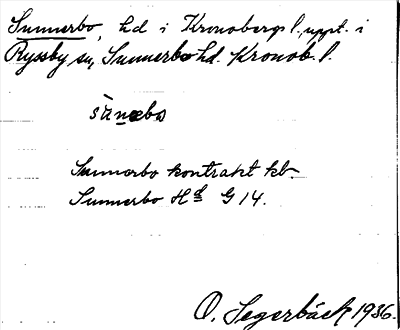 Sunnerbo, hd i Kronobergs l., uppt. i
Ryssby sn, Sunnerbo hd. Kronob. l.
Sunnerbo kontrakt kb.
Sunnerbo Hd G 14.
O. Segerbäck 1936.